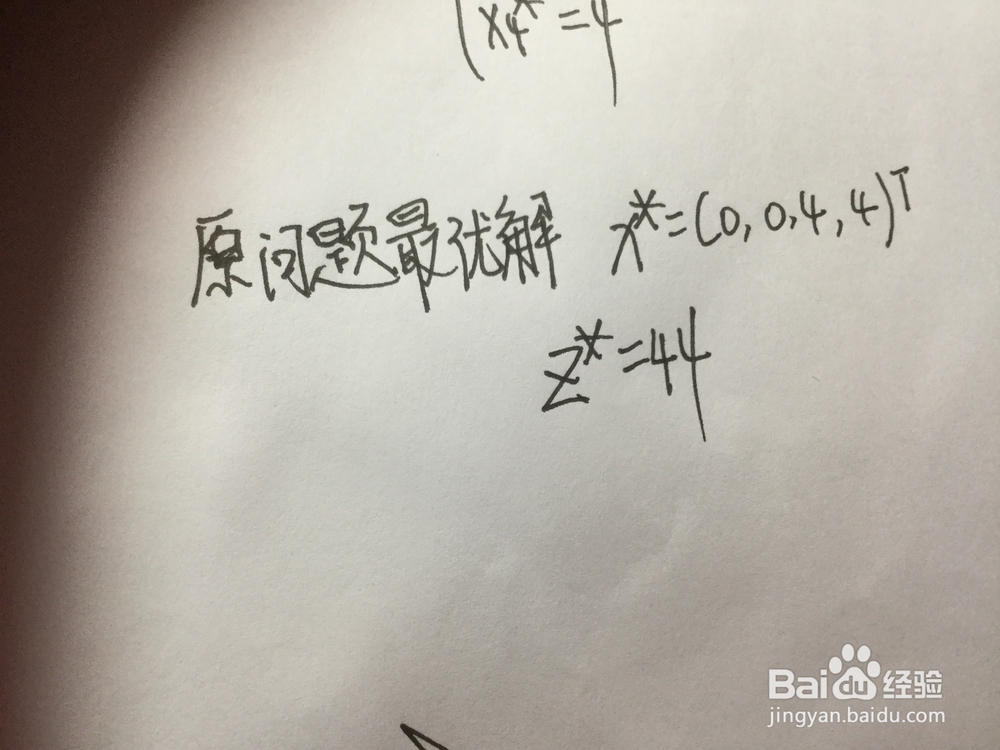 x4*=4
原问题最优解 x*=(0,0,4,4)T
z*=44
Baidu经验
jingyan.baidu.com